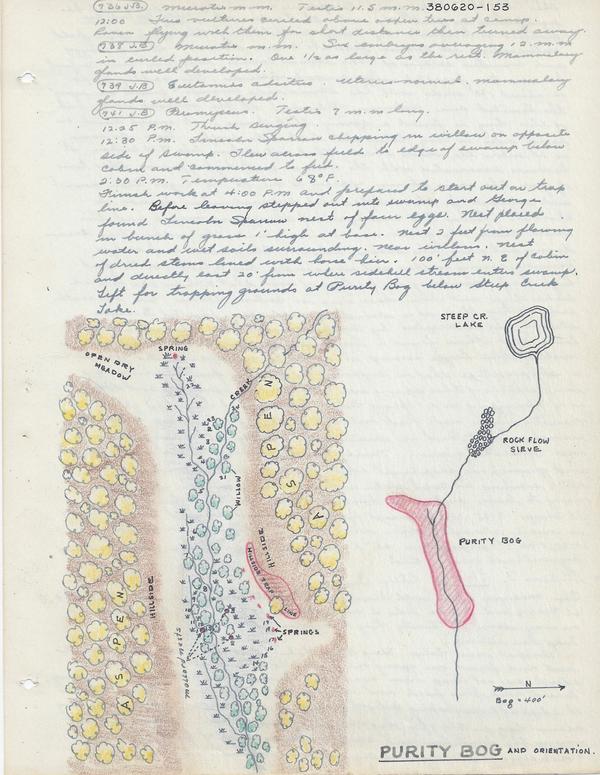 736 J.B. Microtis m.m. Testis 11.5 m.m. 380620-153
12:00 Two vultures circled above aspen trees at camp.
Raven flying with them for short distance then turned away.
738 J.B. Microtis m.m. Six embryos averaging 12 m.m
in curled position. One 1/2 as large as the rest. Mammalary
glands well developed.
739 J.B Eutamas adsitus. Uterus normal. mammalary
glands well developed.
741 J.B Peromyscus. Testis 7 m.m long.
12:25 P.M. Thrush singing.
12:30 P.M. Lincoln Sparrow chipping in willow on opposite
side of swamp. Flew across field to edge of swamp below
cabin and commenced to feed.
2:30 P.M. Temperature 68°F.
Finish work at 4:00 P.M and prepared to start out on trap
line. Before leaving stepped out into swamp and George
found Lincoln Sparrow nest of four eggs. Nest placed
in bunch of grass 1' high at base. Nest 2 feet from flowing
water and wet soils surrounding. Near willows. Nest
of dried stems lined with horse hair. 100' feet N.E of cabin
and directly east 20' from where sidehill stream enters swamp.
Left for trapping grounds at Purity Bog below Steep Creek
Lake.
SPRING
OPEN DRY
MEADOW
CREEK
ASPEN
WILLOW
21
ASPEN
HILLSIDE
HILLSIDE
LINE
SPRINGS
STEEP CR.
LAKE
ROCK FLOW
SIEVE
PURITY BOG
N
Bog = 400'
PURITY BOG AND ORIENTATION.